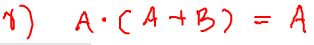 ৪) A · (A + B) = A